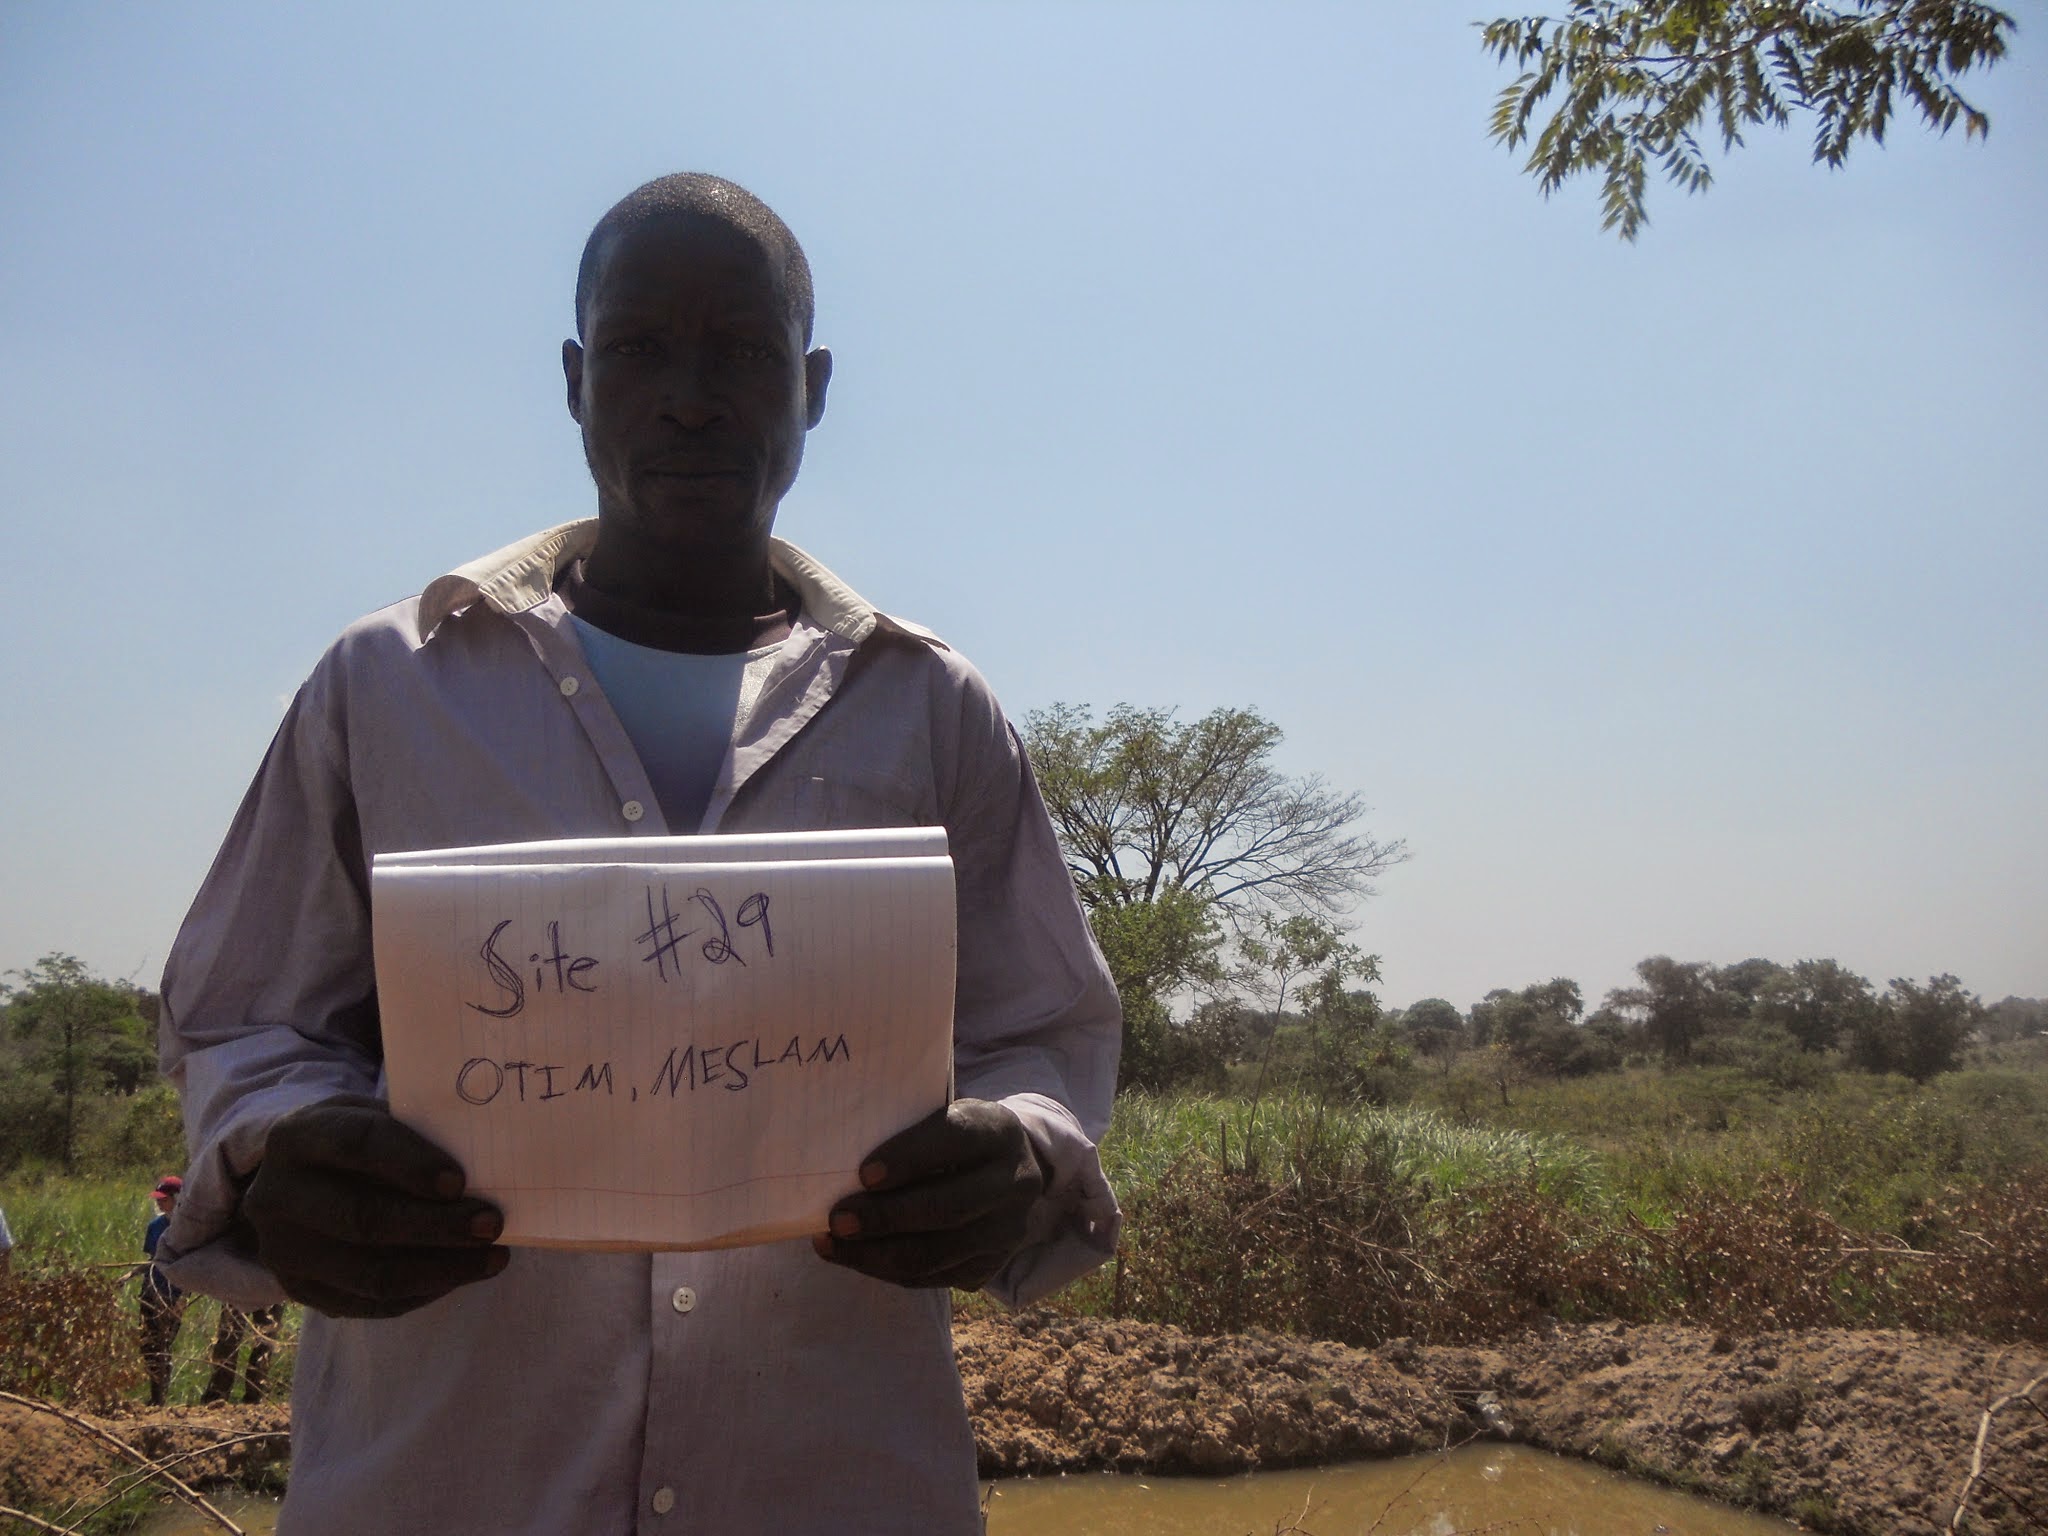 Site #29
OTIM, MESLAM